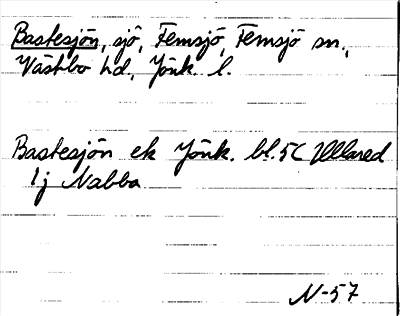 Bastesjön, sjö, Femsjö, Femsjö sn.,
Västbo hd., Jönk. l.
Bastesjön ek Jönk. bl. 5C Ullared
1j Nabba
N-57